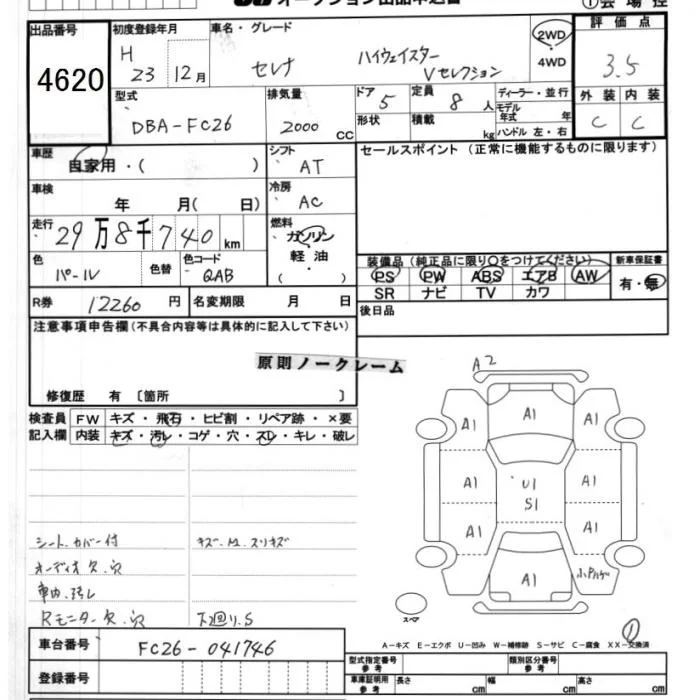 オークション出品申込書
①会場控
出品番号 4620
初度登録年月 H 23 12月
車名・グレード セレナ ハイウェイスター Vセレクション
2WD・4WD
評価点 3.5
外装 内装
C C
型式 DBA-FC26
排気量 2000 CC
ドア 5
形状
定員 8人
積載 kg
ディーラー・並行
モデル年式 年
ハンドル 左・右
車歴 自家用・( )
シフト AT
セールスポイント (正常に機能するものに限ります)
車検 年 月( 日)
冷房 AC
走行 29万8千740km
燃料 ガソリン・軽油・( )
色 パール
色替
色コード QAB
装備品(純正品に限り○をつけてください)
PS PW ABS エアB AW
SR ナビ TV カワ
新車保証書
有・無
R券 12260円
名変期限 月 日
後日品
注意事項申告欄(不具合内容等は具体的に記入して下さい)
原則ノークレーム
修復歴 有〔箇所 〕
検査員記入欄
FW キズ・飛石・ヒビ割・リペア跡・×要
内装 キズ・汚レ・コゲ・穴・スレ・キレ・破レ
シートカバー付
オーディオ欠.穴
車内.汚レ
Rモニター欠.穴
下廻り.S
A2
A1
A1 A1
A1 U1 S1 A1
A1 A1
A1
スペア
①
A-キズ E-エクボ U-凹み W-補修跡 S-サビ C-腐食 XX-交換済
車台番号 FC26-041746
登録番号
型式指定番号 参考
類別区分番号 参考
車庫証明用 参考 長さ cm 幅 cm 高さ cm